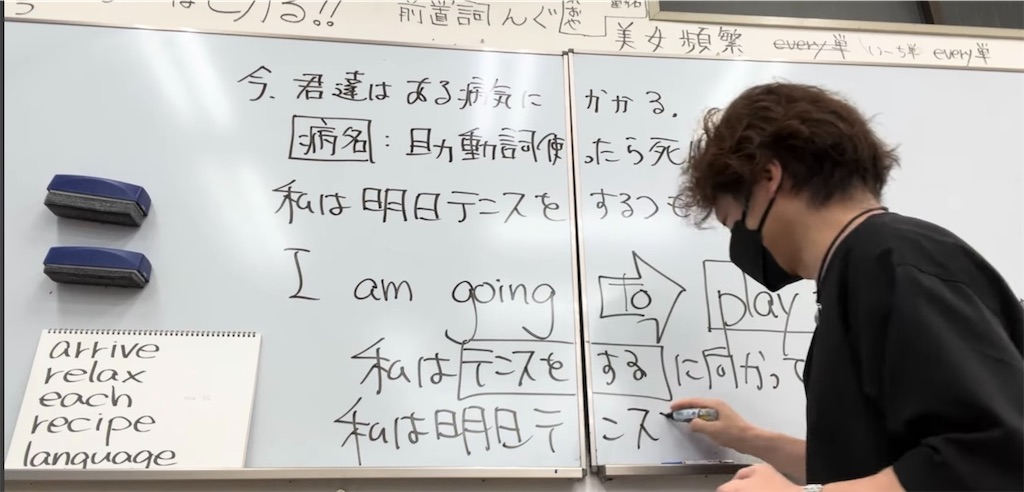 はとける!! 前置詞 んぐ
美女頻繁 every単 いーち単 every単
今、君達はある病気にかかる。
病名:助動詞使ったら死
私は明日テニスをするつも
I am going to play
私はテニスをするに向かって
私は明日テニス
arrive
relax
each
recipe
language